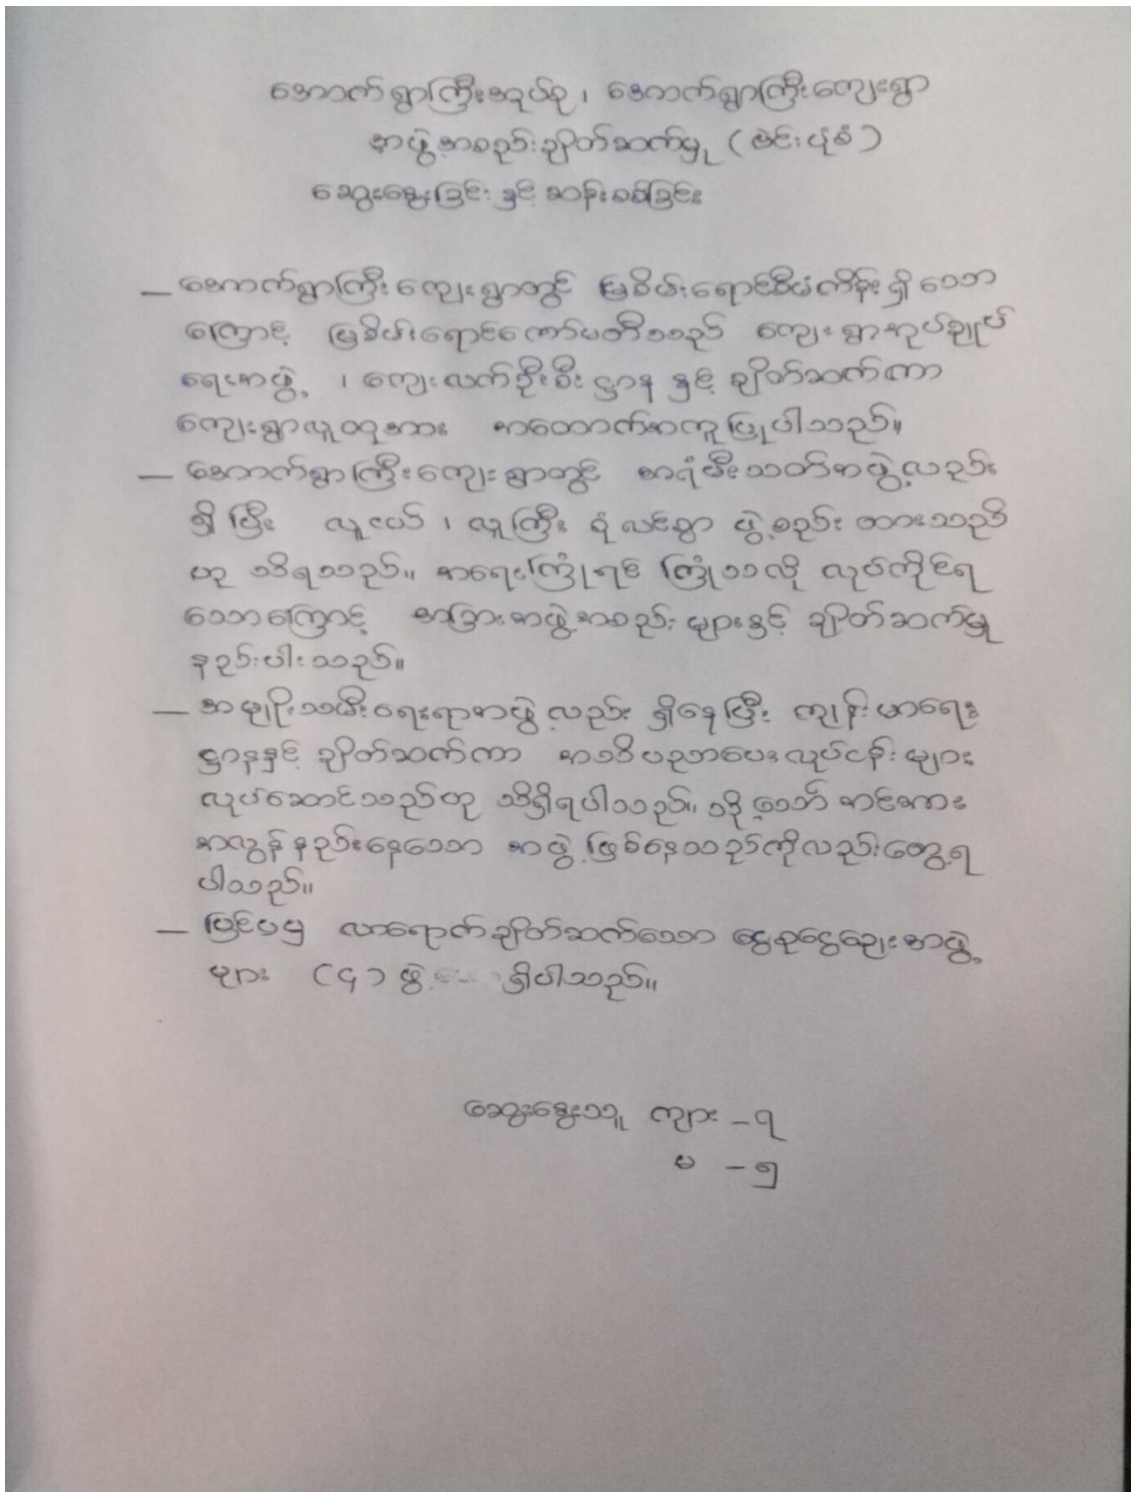 အောက်ရွာကြီးအုပ်စု ၊ အောက်ရွာကြီးကျေးရွာ
အဖွဲ့အစည်းချိတ်ဆက်မှု ( ဗင်းပုံစံ )
ဆွေးနွေးခြင်း နှင့် ဆန်းစစ်ခြင်း
– အောက်ရွာကြီးကျေးရွာတွင် မြစိမ်းရောင်စီမံကိန်း ရှိသော
ကြောင့် မြစိမ်းရောင်ကော်မတီသည် ကျေးရွာအုပ်ချုပ်
ရေးအဖွဲ့ ၊ ကျေးလက်ဦးစီးဌာန နှင့် ချိတ်ဆက်ကာ
ကျေးရွာလူထုအား အထောက်အကူပြုပါသည်။
– အောက်ရွာကြီးကျေးရွာတွင် အရံမီးသတ်အဖွဲ့လည်း
ရှိပြီး လူငယ် ၊ လူကြီး စုံလင်စွာ ဖွဲ့စည်းထားသည်
ဟု သိရသည်။ အရေးကြုံရင် ကြုံသလို လုပ်ကိုင်ရ
သောကြောင့် အခြားအဖွဲ့အစည်းများနှင့် ချိတ်ဆက်မှု
နည်းပါးသည်။
– အမျိုးသမီးရေးရာအဖွဲ့လည်း ရှိနေပြီး ကျန်းမာရေး
ဌာနနှင့် ချိတ်ဆက်ကာ အသိပညာပေးလုပ်ငန်းများ
လုပ်ဆောင်သည်ဟု သိရှိရပါသည်။ သို့သော် အင်အား
အလွန်နည်းနေသော အဖွဲ့ဖြစ်နေသည်ကိုလည်းတွေ့ရ
ပါသည်။
– ပြင်ပမှ လာရောက်ချိတ်ဆက်သော ငွေစုငွေချေးအဖွဲ့
များ (၄) ဖွဲ့ ရှိပါသည်။
ဆွေးနွေးသူ ကျား – ၇
မ – ၅